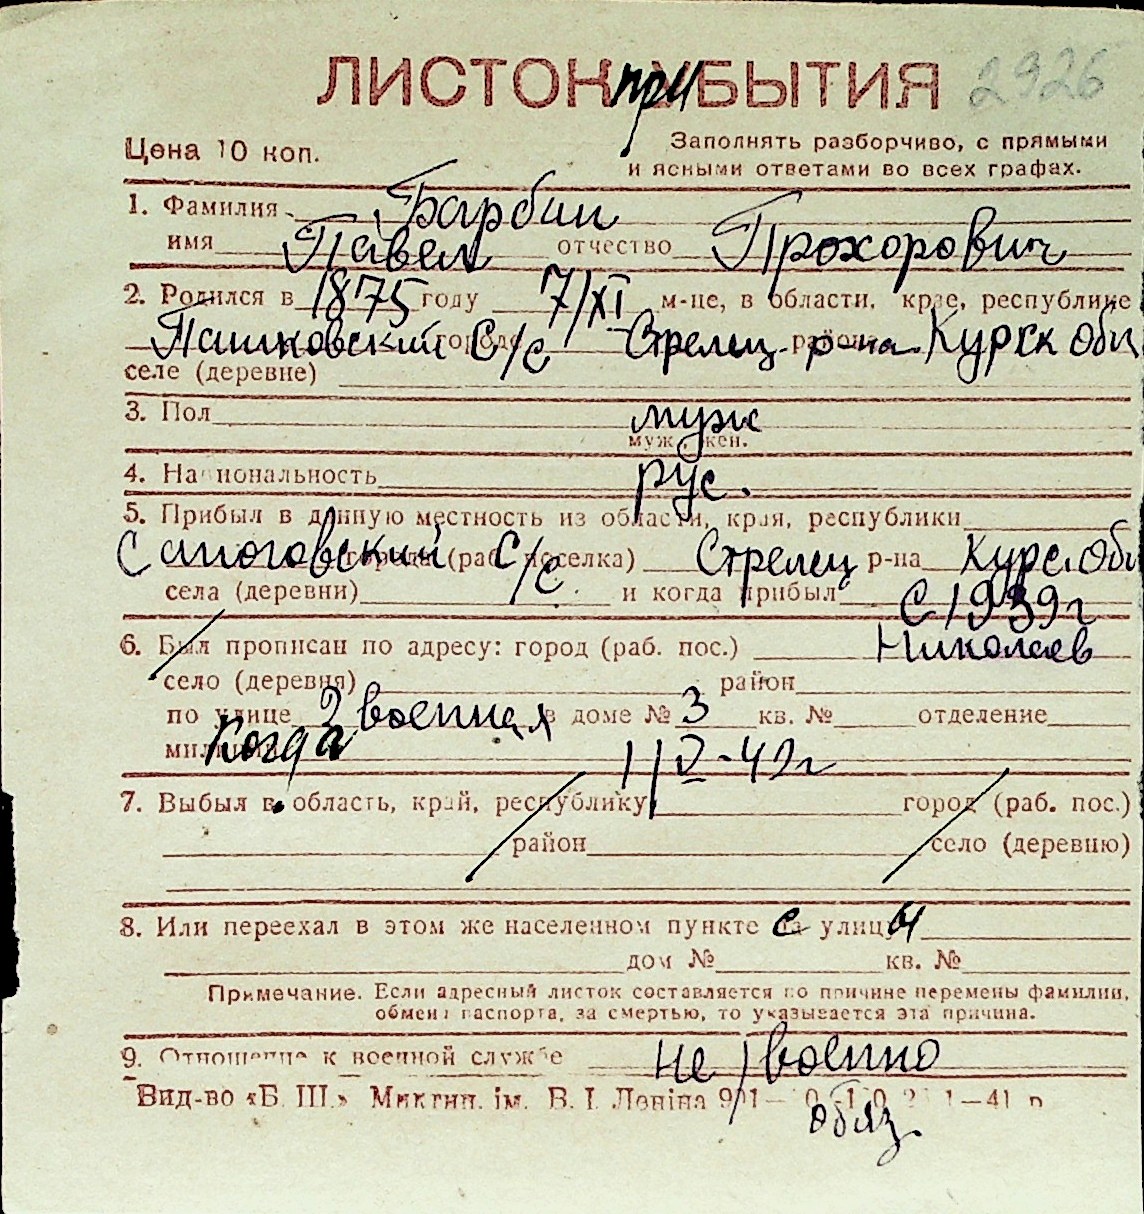 ЛИСТОК приБЫТИЯ 2926
Цена 10 коп. Заполнять разборчиво, с прямыми
и ясными ответами во всех графах.
1. Фамилия Барбин
имя Павел отчество Прохорович
2. Родился в 1875 году 7/XI м-це, в области, крае, республике
Пашковский городе С/с Стрелец. р-на Курск обл
селе (деревне)
3. Пол муж
муж., жен.
4. Национальность рус.
5. Прибыл в данную местность из области, края, республики
Сапоговский города (раб. поселка) С/с Стрелец р-на Курс. Обл
села (деревни) и когда прибыл с 1939 г
6. Был прописан по адресу: город (раб. пос.) Николаев
село (деревня) район
по улице 2 военная в доме № 3 кв. № отделение
милиции Когда 1/V-42 г
7. Выбыл в область, край, республику город (раб. пос.)
район село (деревню)
8. Или переехал в этом же населенном пункте с улицы
дом № кв. №
Примечание. Если адресный листок составляется по причине перемены фамилии,
обмена паспорта, за смертью, то указывается эта причина.
9. Отношение к военной службе не военно
обяз.
Вид-во «Б. Ш.» Микгип. ім. В. І. Леніна